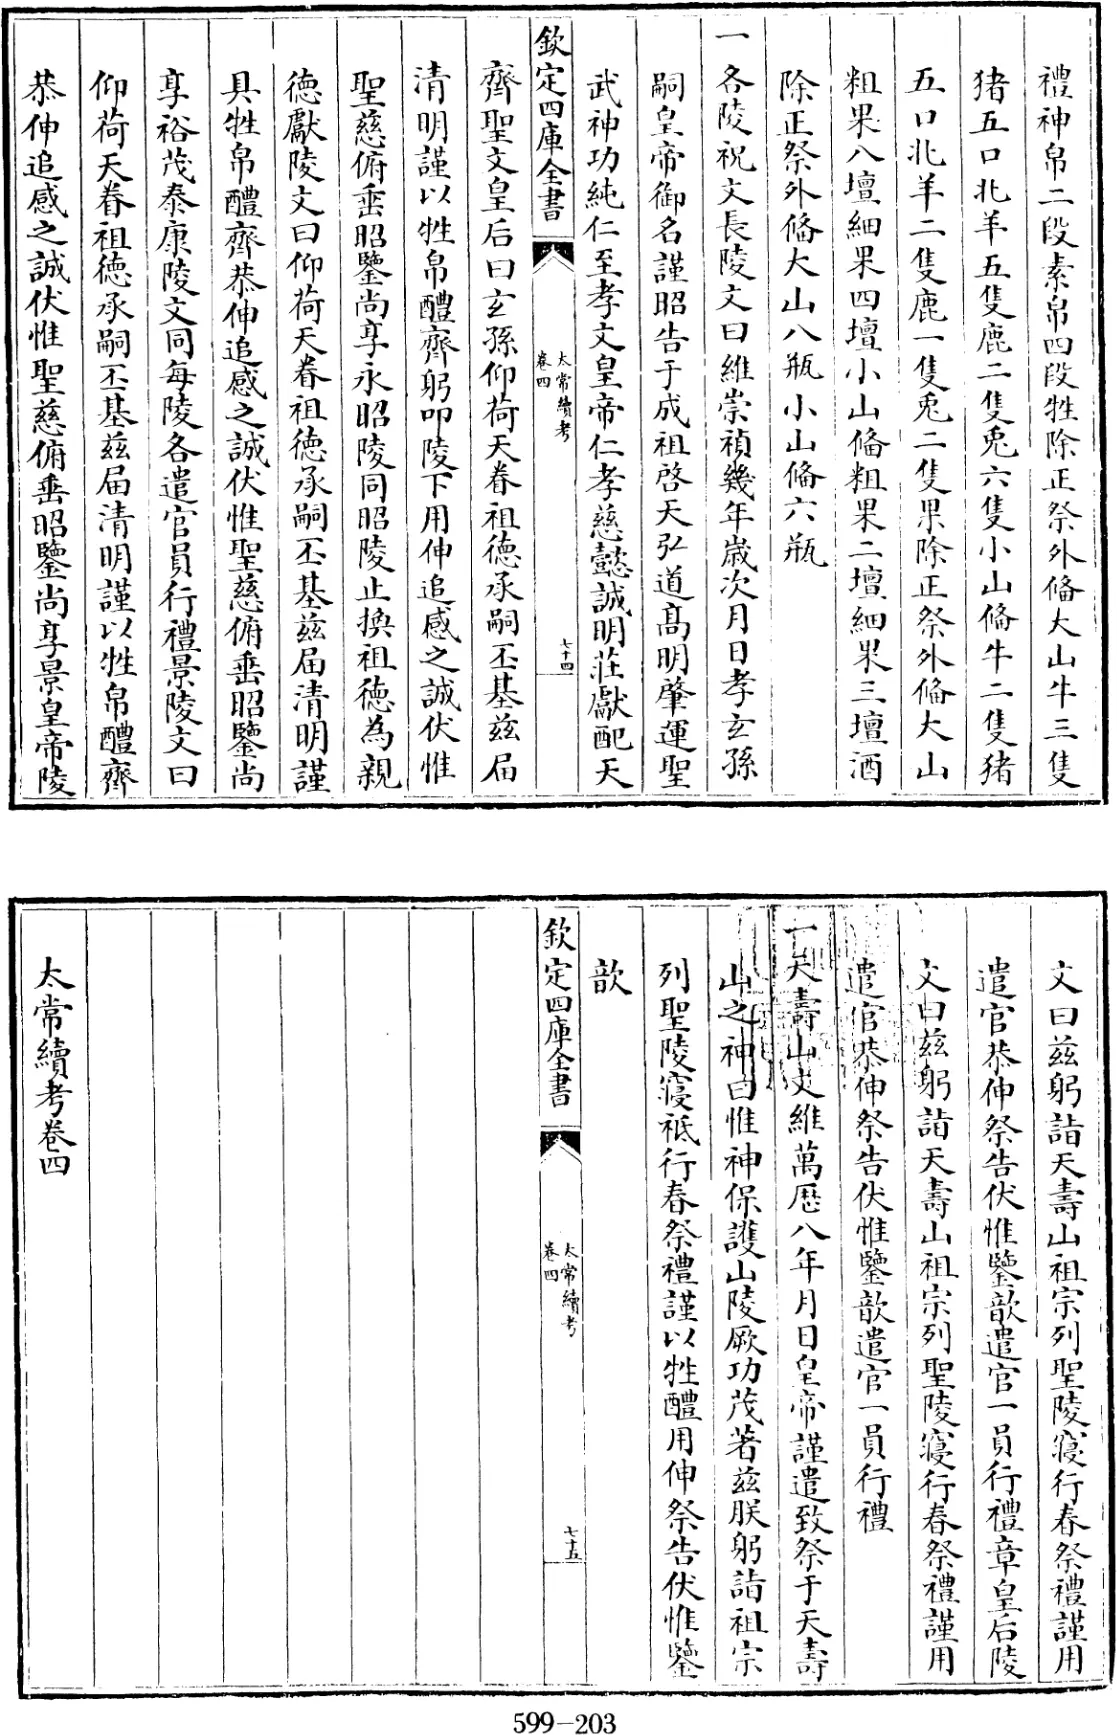 禮神帛二段素帛四段牲除正祭外條大山牛三隻
猪五口北羊五隻鹿二隻兎六隻小山條牛二隻猪
五口北羊二隻鹿一隻兎二隻果除正祭外條大山
粗果八壇細果四壇小山條粗果二壇細果三壇酒
除正祭外條大山八瓶小山條六瓶
一各陵祝文長陵文曰維崇禎幾年嵗次月日孝玄孫
嗣皇帝御名謹昭告于成祖啓天弘道髙明肇運聖
武神功純仁至孝文皇帝仁孝慈懿誠明莊獻配天
欽定四庫全書
太常續考
卷四
七十四
齊聖文皇后曰玄孫仰荷天眷祖徳承嗣丕基兹届
清明謹以牲帛醴齊躬叩陵下用伸追感之誠伏惟
聖慈俯垂昭鑒尚享永昭陵同昭陵止換祖徳為親
徳獻陵文曰仰荷天眷祖徳承嗣丕基兹届清明謹
具牲帛醴齊恭伸追感之誠伏惟聖慈俯垂昭鑒尚
享裕茂泰康陵文同每陵各遣官員行禮景陵文曰
仰荷天眷祖徳承嗣丕基兹届清明謹以牲帛醴齊
恭伸追感之誠伏惟聖慈俯垂昭鑒尚享景皇帝陵
文曰兹躬詣天壽山祖宗列聖陵寢行春祭禮謹用
遣官恭伸祭告伏惟鑒歆遣官一員行禮章皇后陵
文曰兹躬詣天壽山祖宗列聖陵寢行春祭禮謹用
遣官恭伸祭告伏惟鑒歆遣官一員行禮
一天壽山文維萬厯八年月日皇帝謹遣致祭于天壽
山之神曰惟神保護山陵厥功茂著兹朕躬詣祖宗
列聖陵寢祗行春祭禮謹以牲醴用伸祭告伏惟鑒
歆
欽定四庫全書
太常續考
卷四
七十五
太常續考卷四
599-203